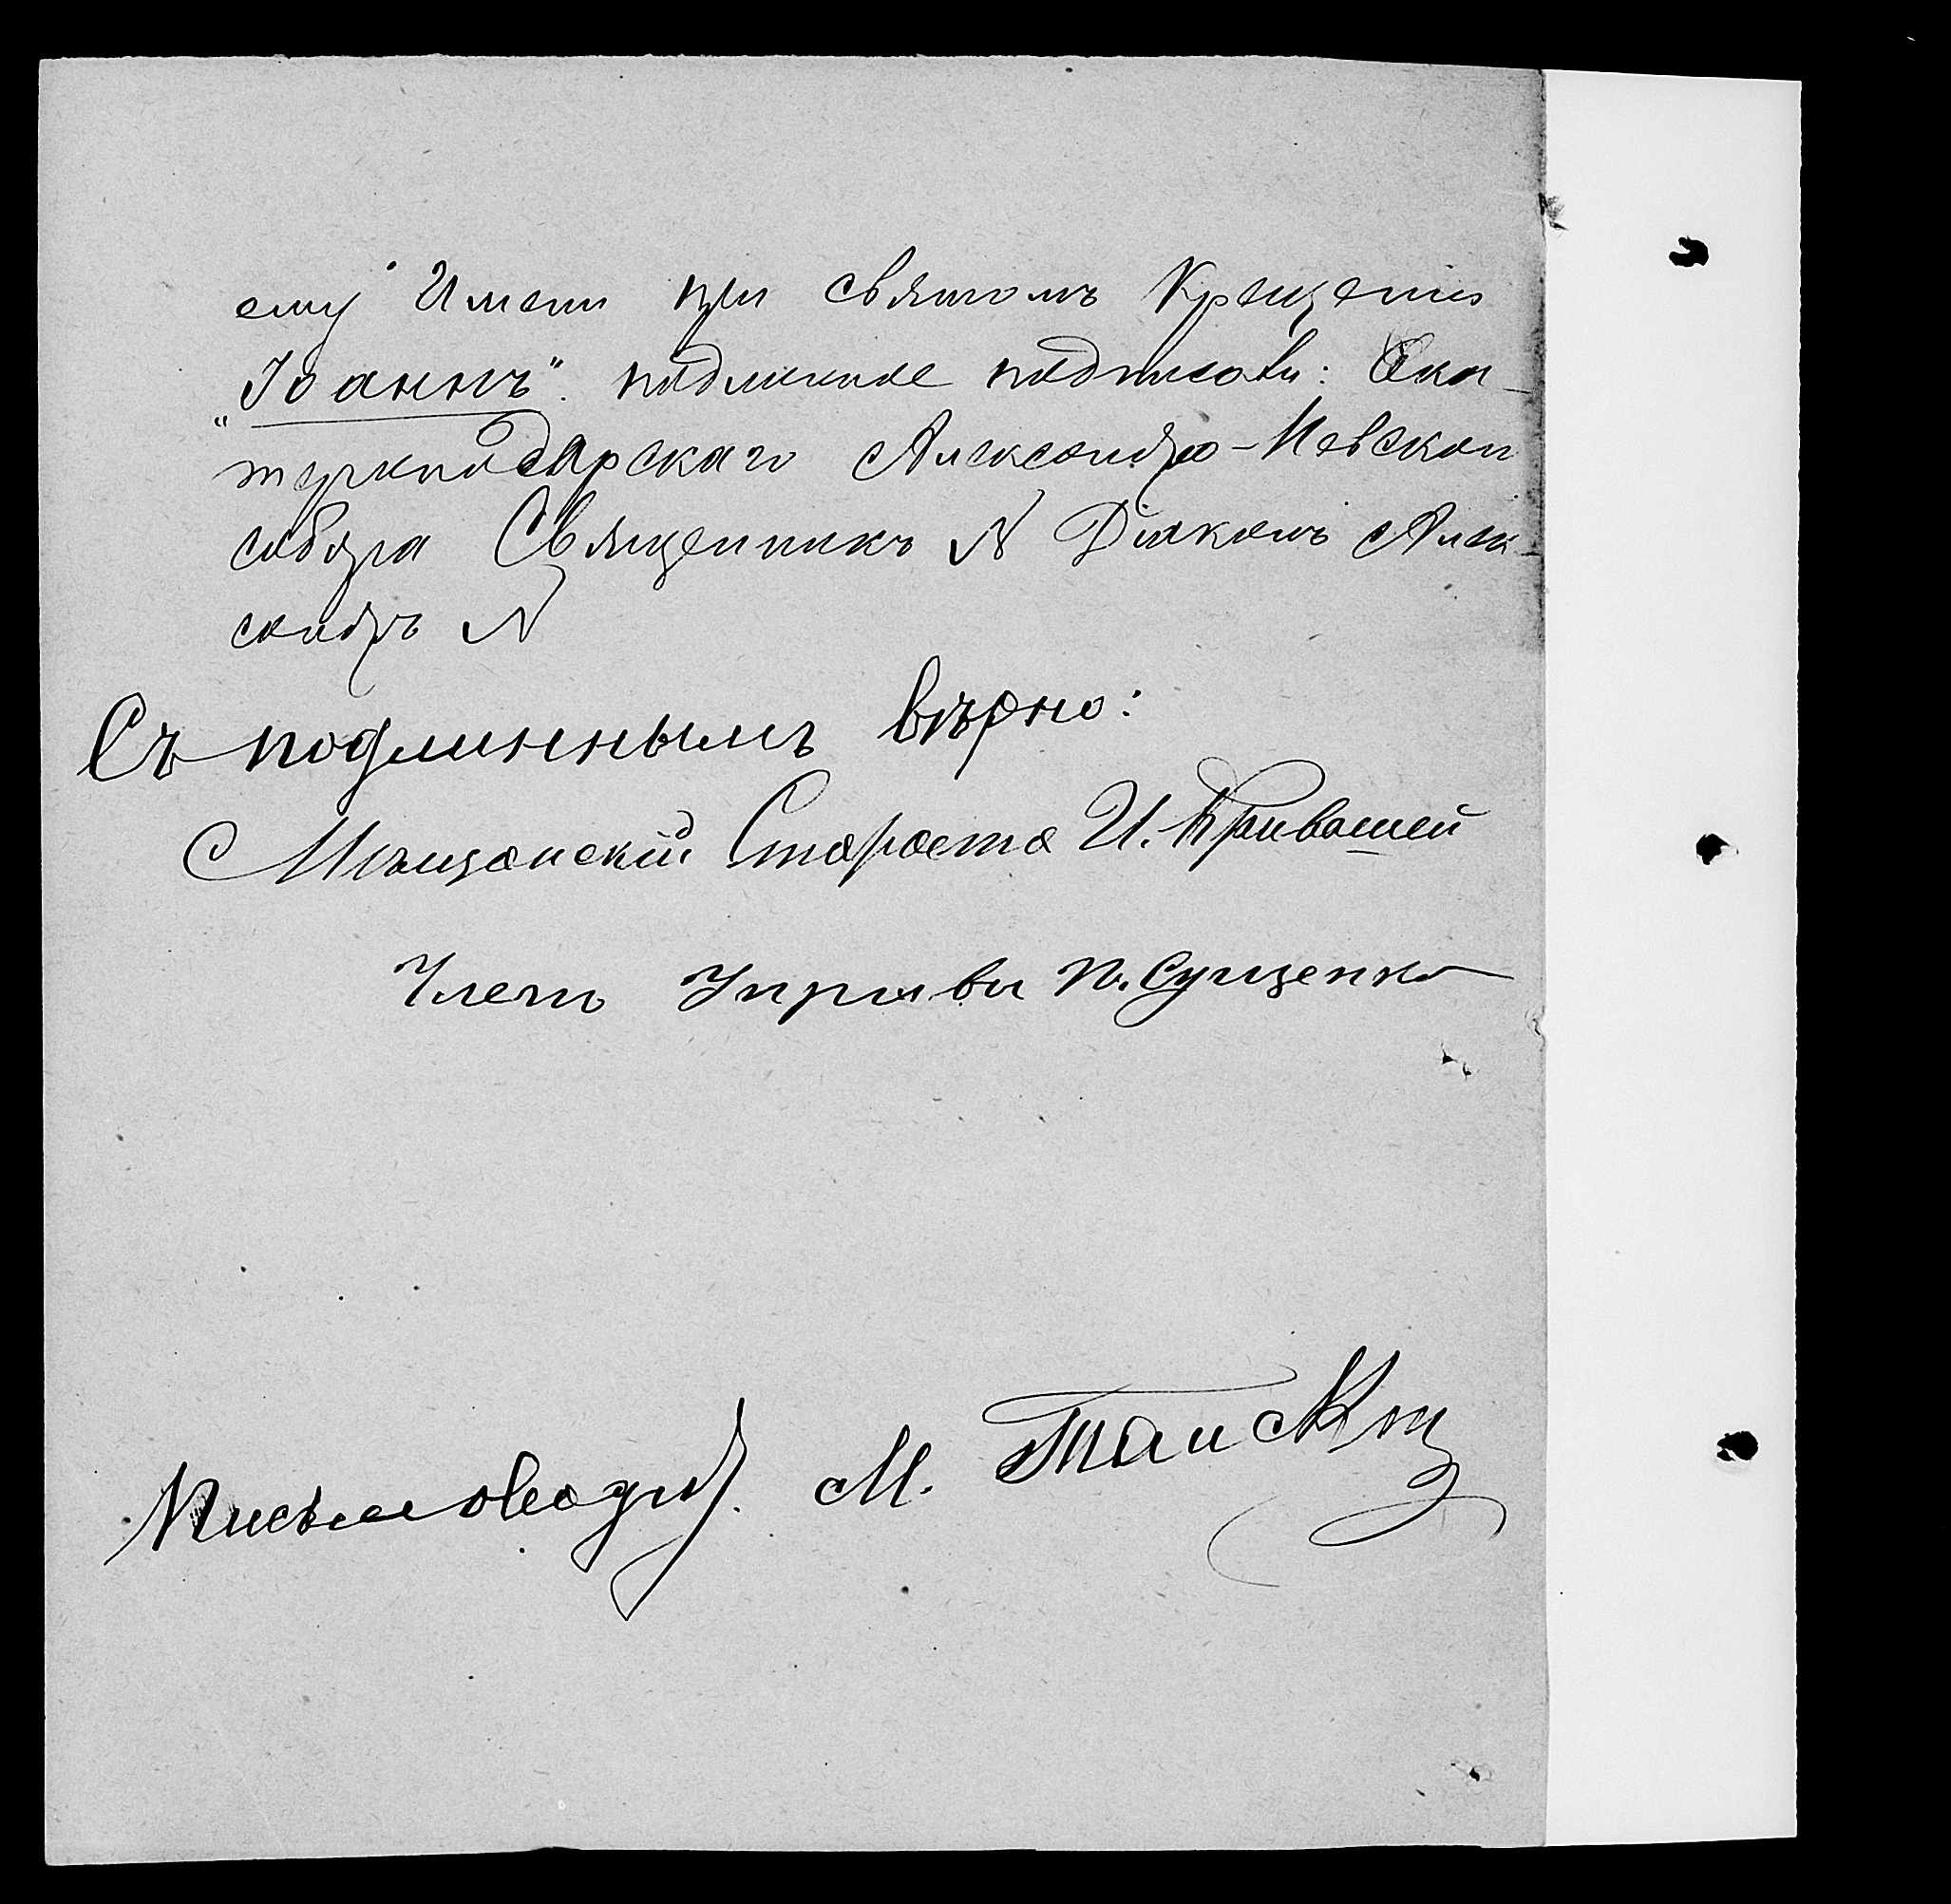 ему Имени при святомъ Крещеніи
"Іоаннъ". подлинное подписали: Ека-
теринодарскаго Александро-Невскаго
собора Священникъ N Діаконъ Алек-
сандръ N
Съ подлиннымъ вѣрно:
Мѣщанскій Староста И. Кривошей
Членъ Управы П. Сущенко
Письмоводит. М.